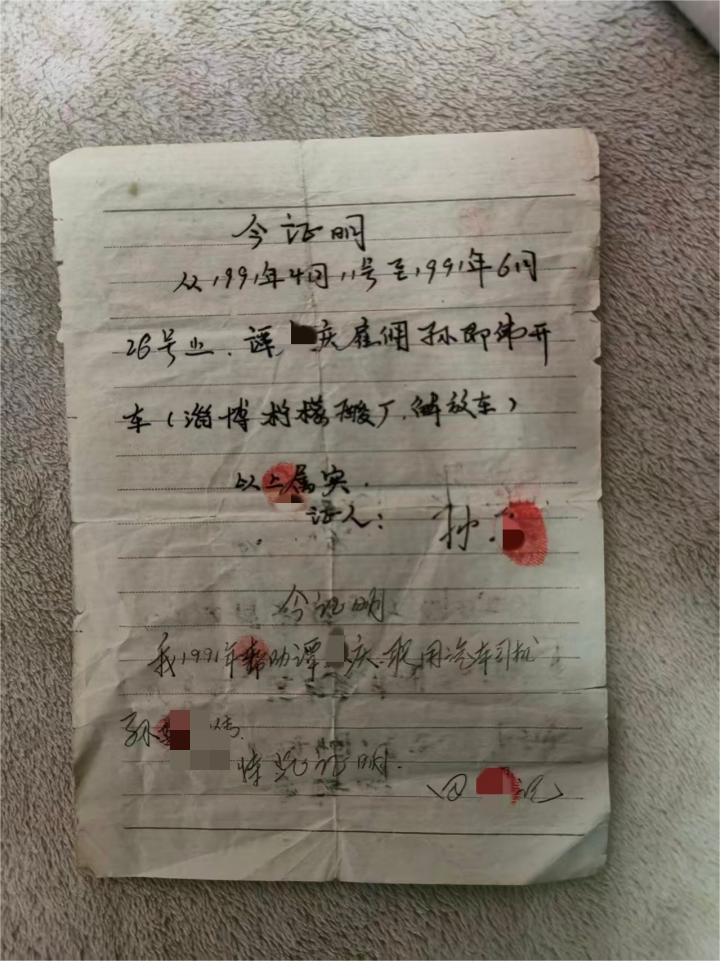 今证明
从1991年4月11号至1991年6月
26号止.谭 庆雇佣孙即伟开
车(淄博柠檬酸厂.解放车)
以上属实.
证人: 孙
今证明
我1991年帮助谭 庆 取用汽车司机
孙
特此证明.